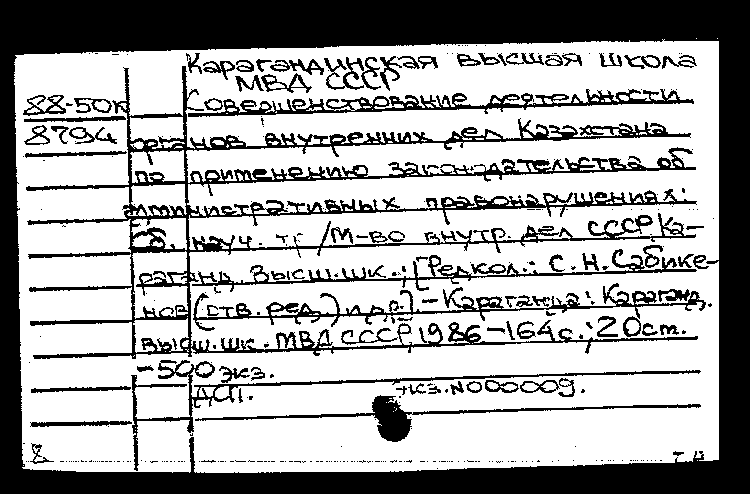 Карагандинская высшая школа
МВД СССР
88-50к Совершенствование деятельности
8794 органов внутренних дел Казахстана
по применению законодательства об
административных правонарушениях:
Сб. науч. тр / М-во внутр. дел СССР, Ка-
раганд. высш. шк.; [Редкол.: С.Н. Сабике-
нов (отв. ред.) и др.]. - Караганда: Караганд.
высш. шк. МВД СССР, 1986 - 164 с.; 20 см.
- 500 экз.
ДСП. Экз. N 000009.